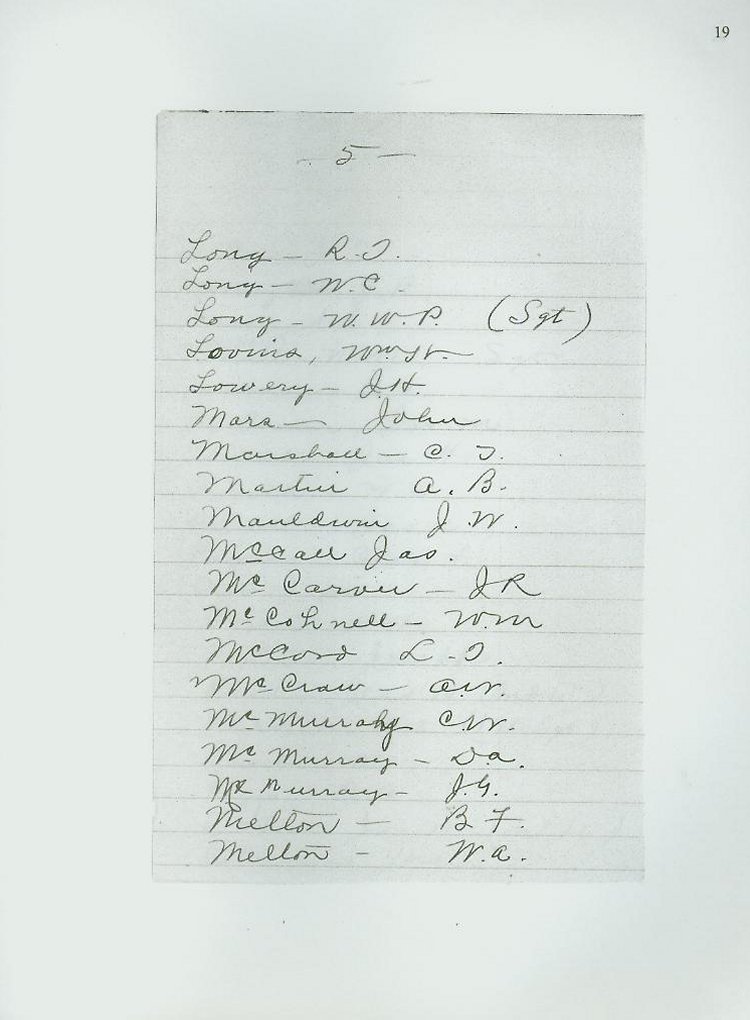 19
- 5 -
Long - R. T.
Long - W. C.
Long - W. W. P. (Sgt)
Lovins, Wm H.
Lowery - J. H.
Mars - John
Marshall - C. T.
Martin A. B.
Mauldwin J. W.
McCall Jas.
Mc Carver - J R
Mc Connell - Wm
McCord L. T.
Mc Craw - A. W.
Mc Murray C. W.
Mc Murray - D. A.
Mc Murray - J. G.
Melton - B F.
Melton - W. A.